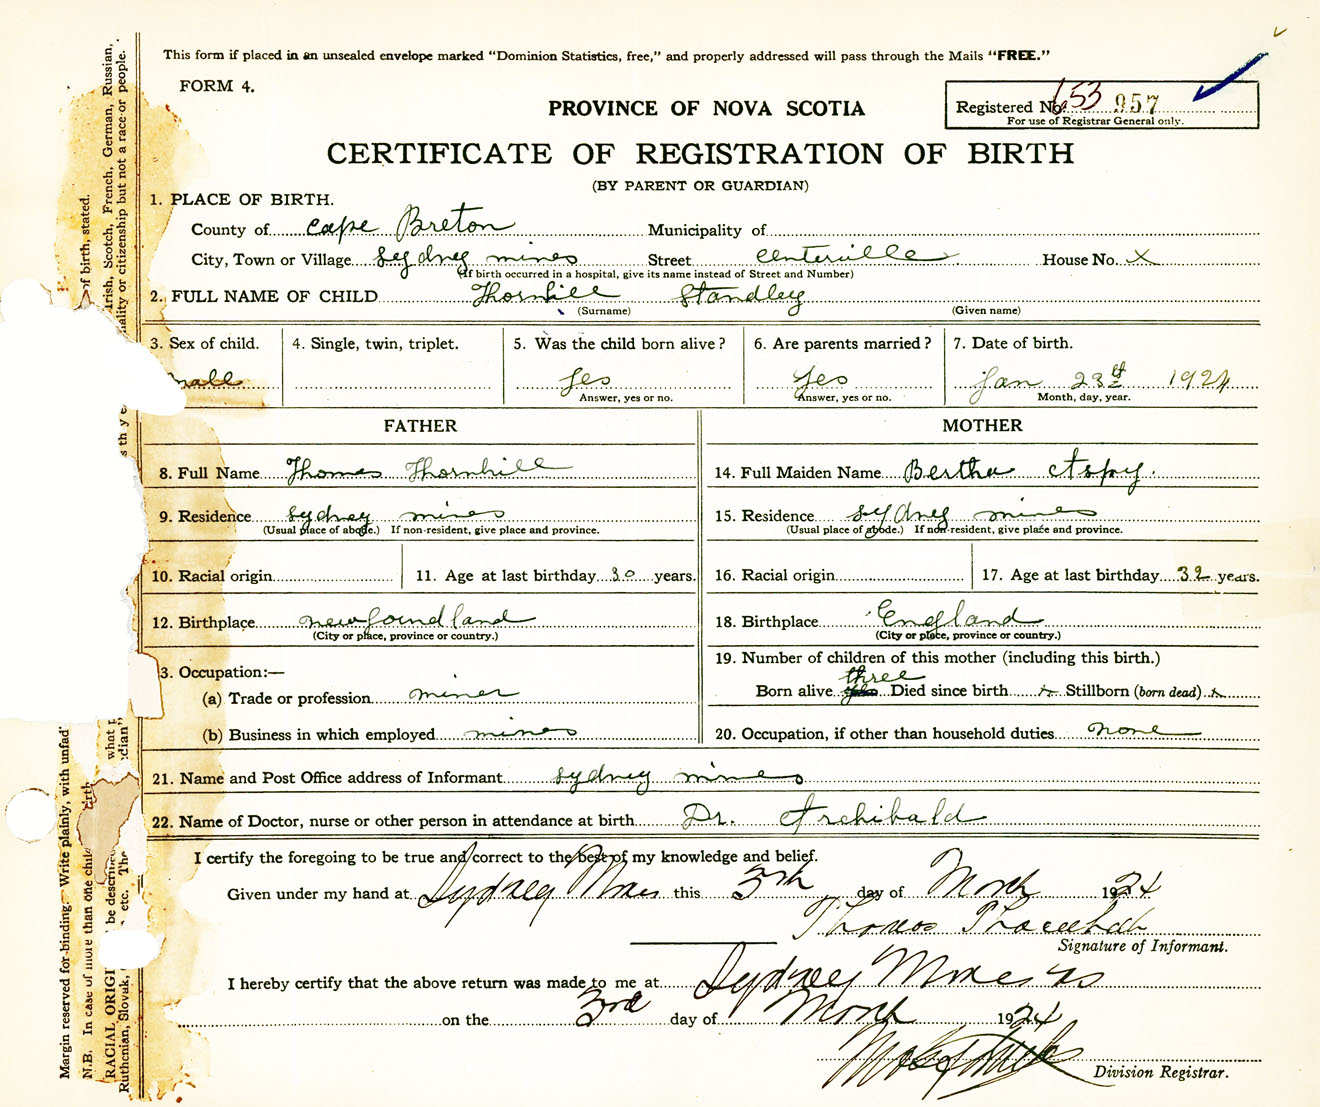 This form if placed in an unsealed envelope marked "Dominion Statistics, free," and properly addressed will pass through the Mails "FREE."
FORM 4.
Registered No. 653 957
For use of Registrar General only.
PROVINCE OF NOVA SCOTIA
CERTIFICATE OF REGISTRATION OF BIRTH
(BY PARENT OR GUARDIAN)
1. PLACE OF BIRTH.
County of cape Breton Municipality of
City, Town or Village sydney mines Street centerville House No. x
(If birth occurred in a hospital, give its name instead of Street and Number)
2. FULL NAME OF CHILD Thornhill Standley
(Surname) (Given name)
3. Sex of child. 4. Single, twin, triplet. 5. Was the child born alive? 6. Are parents married? 7. Date of birth.
male yes yes Jan 23 1924
Answer, yes or no. Answer, yes or no. Month, day, year.
FATHER MOTHER
8. Full Name Thomas Thornhill 14. Full Maiden Name Bertha Aspy.
9. Residence sydney mines 15. Residence sydney mines
(Usual place of abode.) If non-resident, give place and province. (Usual place of abode.) If non-resident, give place and province.
10. Racial origin 11. Age at last birthday 30 years. 16. Racial origin 17. Age at last birthday 32 years.
12. Birthplace newfoundland 18. Birthplace England
(City or place, province or country.) (City or place, province or country.)
3. Occupation:— 19. Number of children of this mother (including this birth.)
(a) Trade or profession miner Born alive three Died since birth x Stillborn (born dead) x
(b) Business in which employed mines 20. Occupation, if other than household duties none
21. Name and Post Office address of Informant sydney mines
22. Name of Doctor, nurse or other person in attendance at birth Dr. Archibald
I certify the foregoing to be true and correct to the best of my knowledge and belief.
Given under my hand at Sydney Mines this day of March 1924
Thomas Thornhill
Signature of Informant.
I hereby certify that the above return was made to me at Sydney Mines NS
on the 3rd day of March 1924
Division Registrar.
Margin reserved for binding. Write plainly, with unfad
N.B. In case of more than one child birth of birth, stated.
RACIAL ORIGI be described what p Irish, Scotch, French, German, Russian,
Ruthenian, Slovak, etc. The dian" s th y e ality or citizenship but not a race or people.